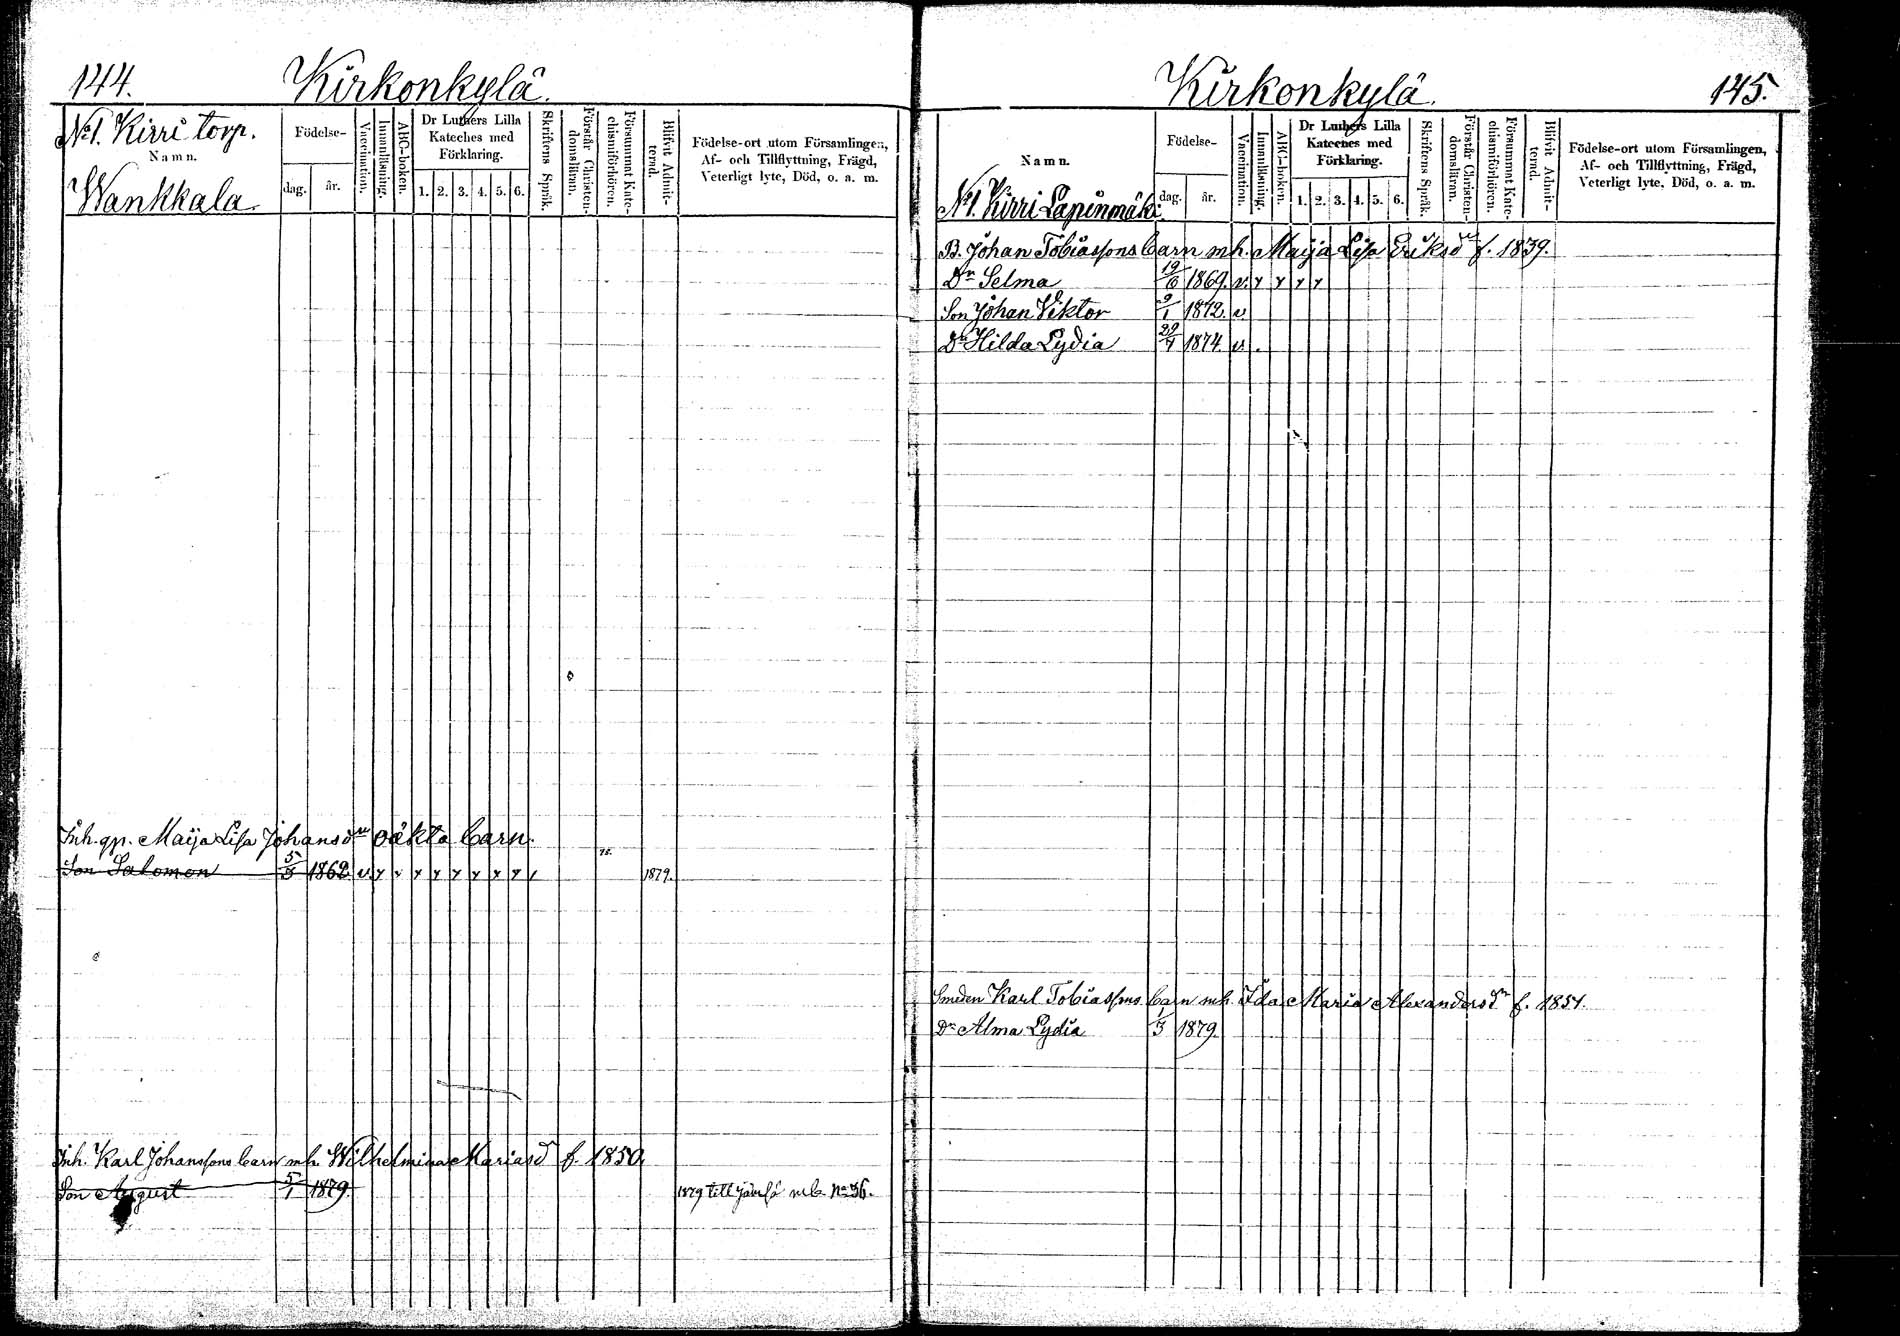 144. Kirkonkylä.
No 1. Kirri torp.
Namn.
Wankkala
Födelse-
dag. år.
Vaccination.
Innanläsning.
ABC-boken.
Dr Luthers Lilla Kateches med Förklaring.
1. 2. 3. 4. 5. 6.
Skriftens Språk.
Förstår Christendomsläran.
Försummat Katechismiförhören.
Blifvit Admitterad.
Födelse-ort utom Församlingen,
Af- och Tillflyttning, Frägd,
Veterligt lyte, Död, o. a. m.
Inh. gp. Maija Lisa Johansdr oäkta barn.
Son Salomon 5/3 1862 v 75. 1879.
Inh. Karl Johanssons barn mh. Wilhelmina Mariasd f. 1850.
Son August 5/1 1879. 1879 till mb. No 36.
Kirkonkylä. 145.
Namn.
No 1. Kirri Lapinmäki
Födelse-
dag. år.
Vaccination.
Innanläsning.
ABC-boken.
Dr Luthers Lilla Kateches med Förklaring.
1. 2. 3. 4. 5. 6.
Skriftens Språk.
Förstår Christendomsläran.
Försummat Katechismiförhören.
Blifvit Admitterad.
Födelse-ort utom Församlingen,
Af- och Tillflyttning, Frägd,
Veterligt lyte, Död, o. a. m.
B. Johan Tobiassons barn mh. Maija Lisa Eriksdr f. 1839.
Dr Selma 19/6 1869. v.
Son Johan Viktor 9/1 1872. v
Dr Hilda Lydia 29/4 1874. v.
Smeden Karl Tobiassons barn mh. Ida Maria Alexandersdr f. 1851.
Dr Alma Lydia 1/3 1879.